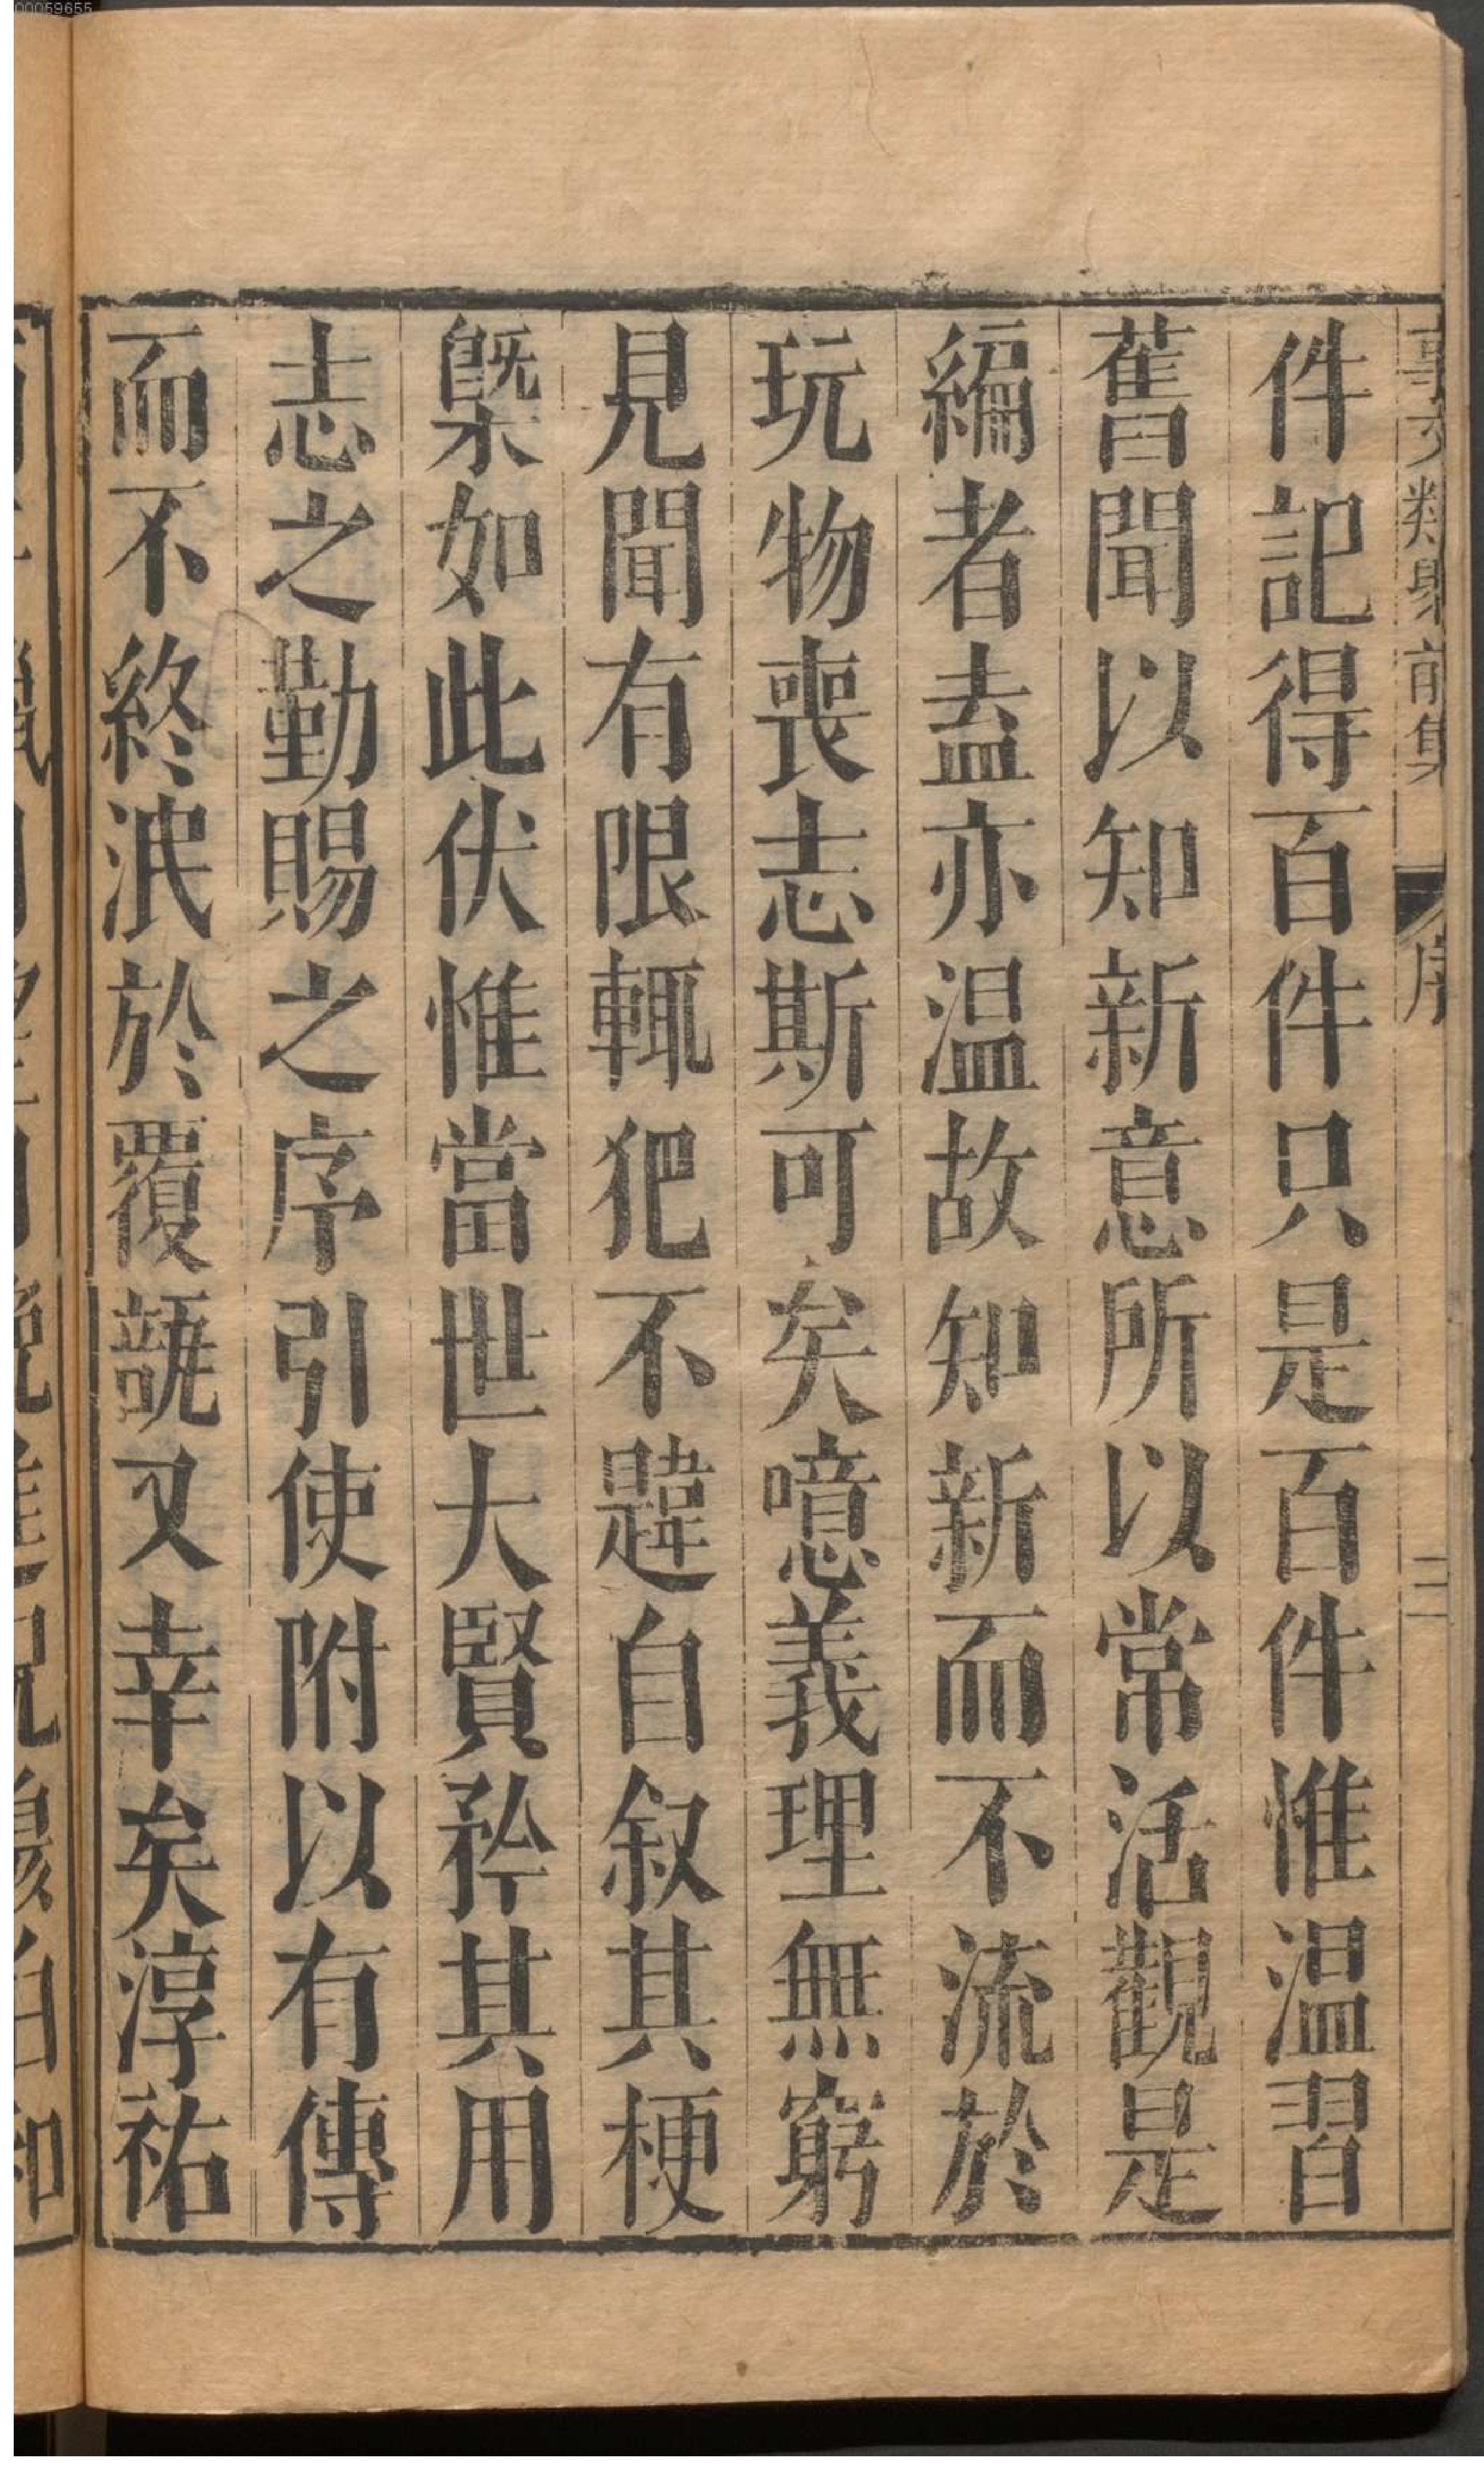 00059655
事文類聚前集
序
二
件記得百件只是百件惟温習
舊聞以知新意所以常活觀是
編者盍亦温故知新而不流於
玩物喪志斯可矣噫義理無窮
見聞有限輒犯不韙自叙其梗
槩如此伏惟當世大賢矜其用
志之勤賜之序引使附以有傳
而不終泯於覆瓿又幸矣淳祐